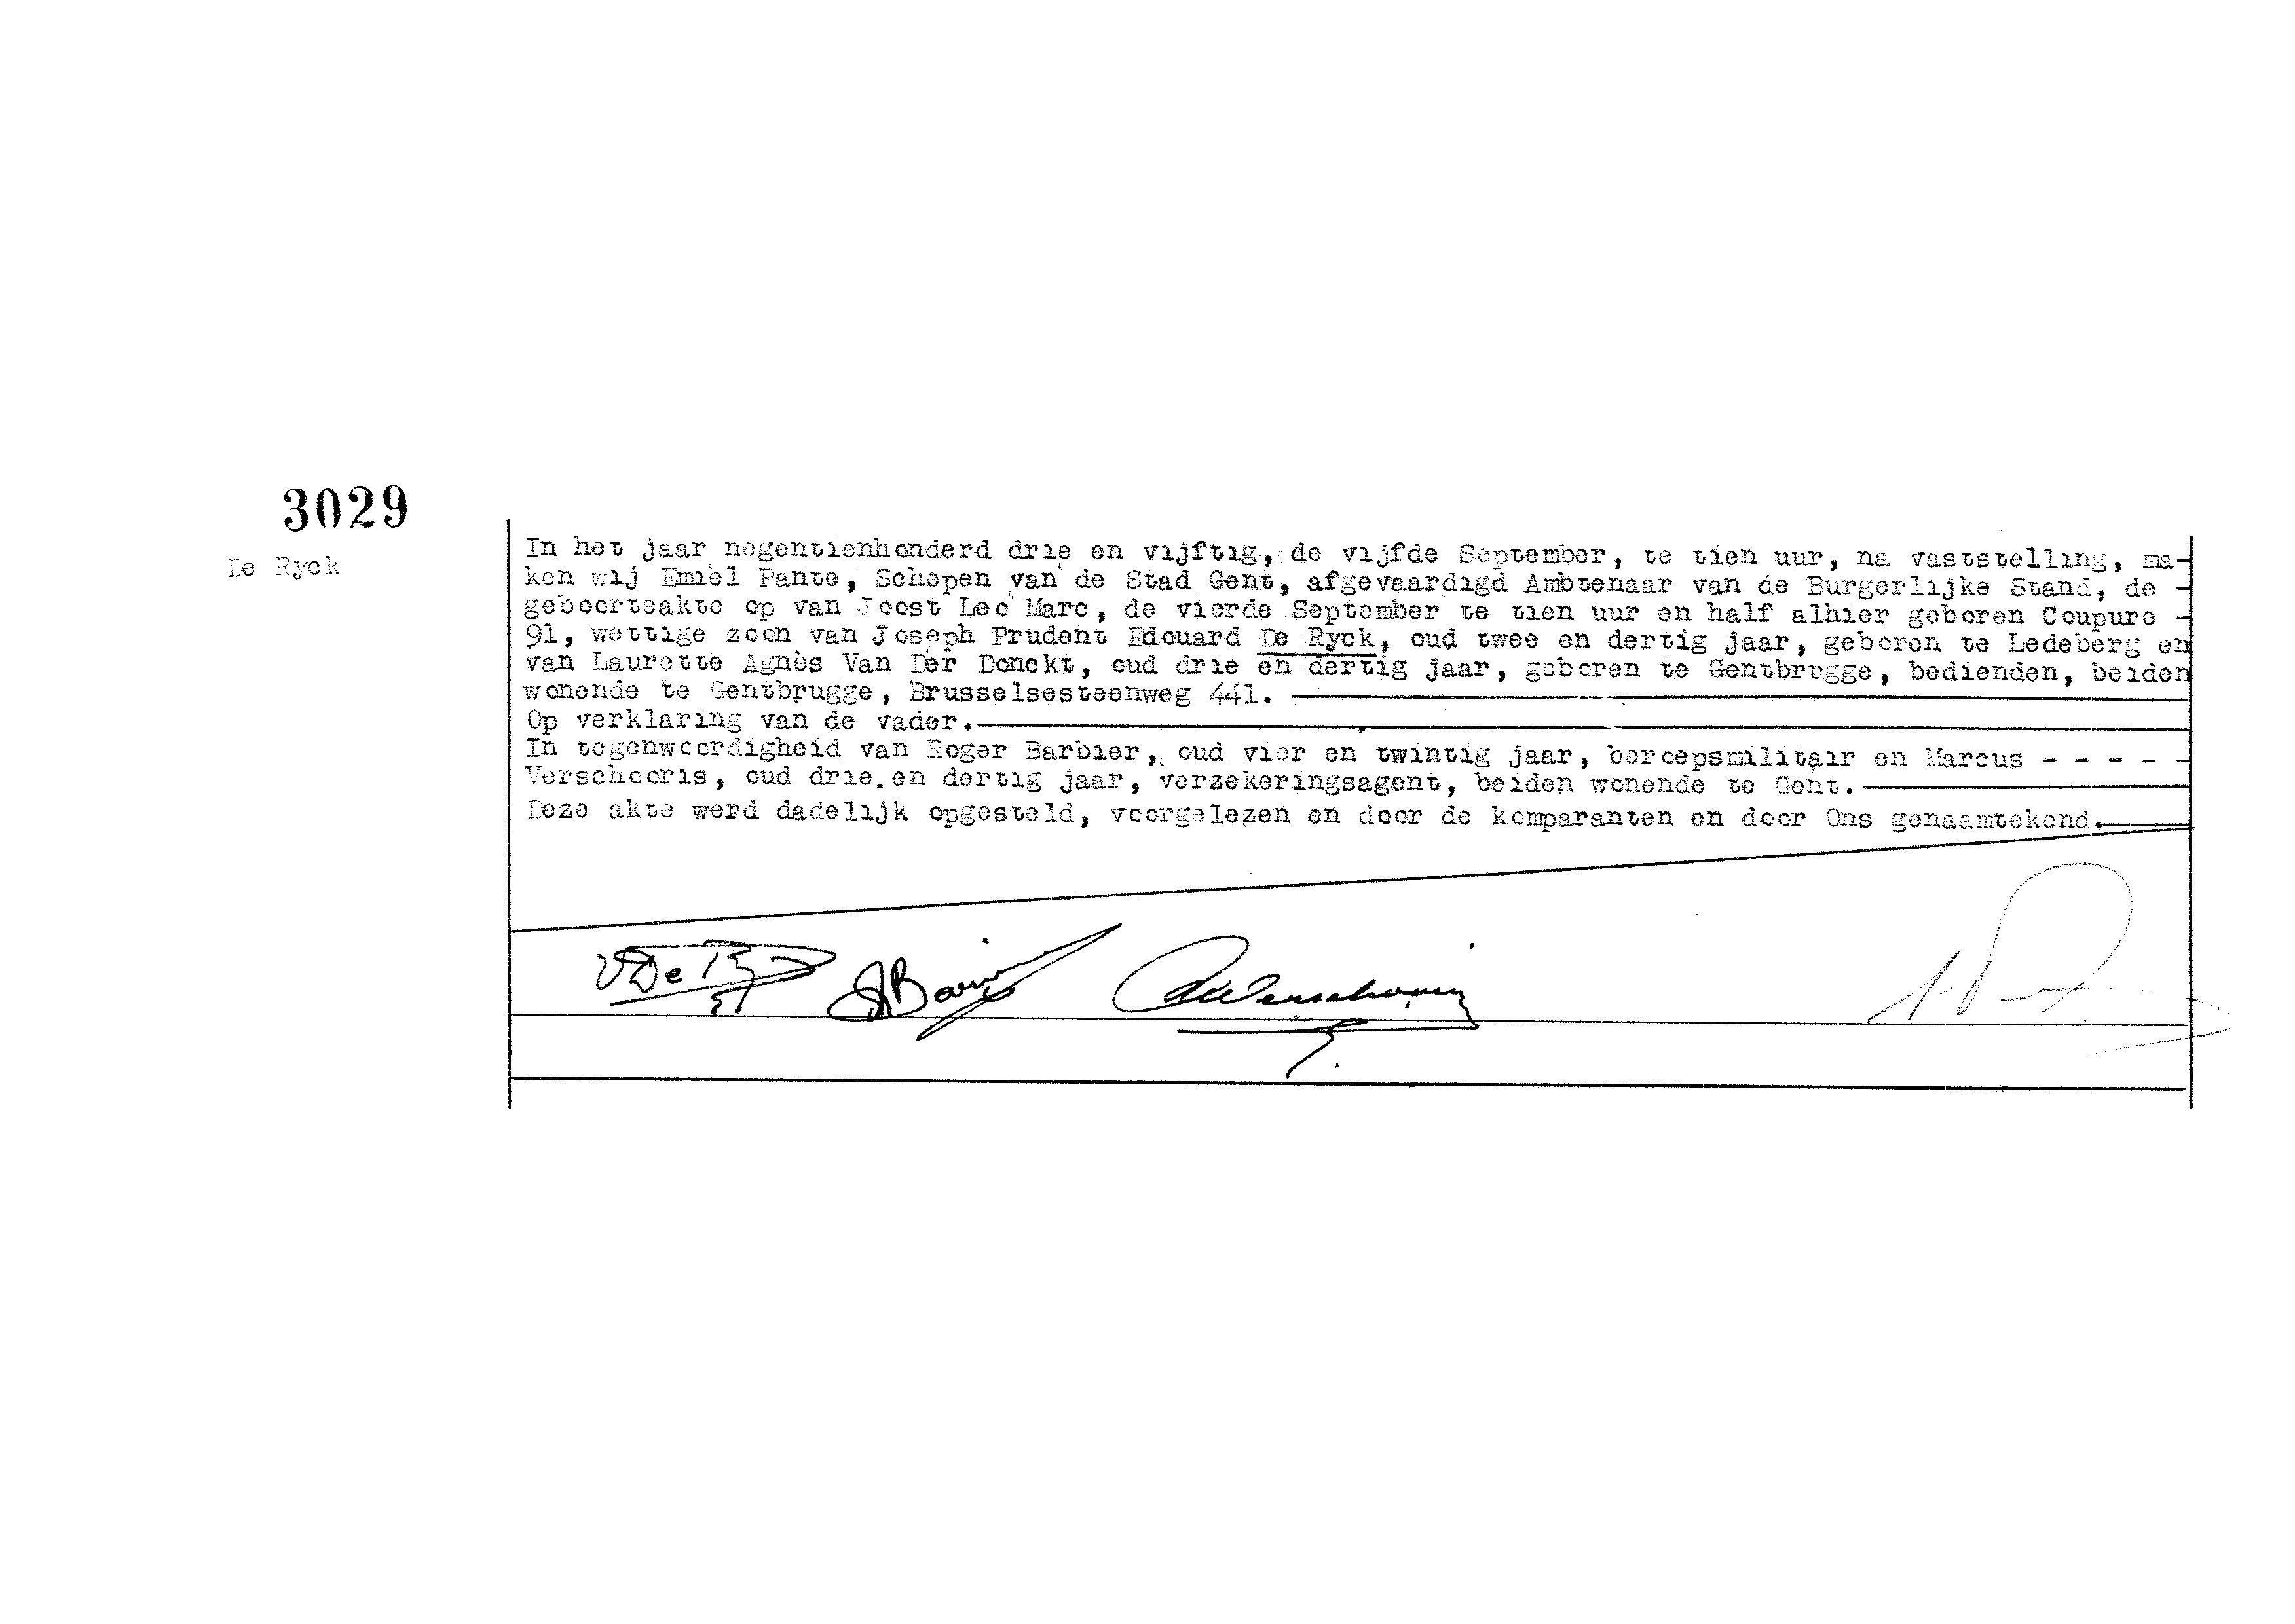 3029
De Ryck
In het jaar negentienhonderd drie en vijftig, de vijfde September, te tien uur, na vaststelling, ma-
ken wij Emiel Pante, Schepen van de Stad Gent, afgevaardigd Ambtenaar van de Burgerlijke Stand, de -
geboorteakte op van Joost Leo Marc, de vierde September te tien uur en half alhier geboren Coupure -
91, wettige zoon van Joseph Prudent Edouard De Ryck, oud twee en dertig jaar, geboren te Ledeberg en
van Laurette Agnès Van Der Donckt, oud drie en dertig jaar, geboren te Gentbrugge, bedienden, beiden
wonende te Gentbrugge, Brusselsesteenweg 441.
Op verklaring van de vader.
In tegenwoordigheid van Roger Barbier, oud vier en twintig jaar, beroepsmilitair en Marcus - - - - -
Verschooris, oud drie en dertig jaar, verzekeringsagent, beiden wonende te Gent.
Deze akte werd dadelijk opgesteld, voorgelezen en door de komparanten en door Ons genaamtekend.